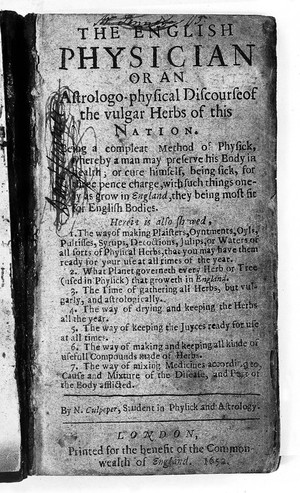 THE ENGLISH
PHYSICIAN
OR AN
Astrologo-physical Discourse of
the vulgar Herbs of this
NATION.
Being a compleat Method of Physick,
whereby a man may preserve his Body in
Health; or cure himself, being sick, for
three pence charge, with such things one-
ly as grow in England, they being most fit
for English Bodies.
Herein is also shewed,
1. The way of making Plaisters, Oyntments, Oyls,
Pultisses, Syrups, Decoctions, Julips, or Waters of
all sorts of Physical Herbs, that you may have them
ready for your use at all times of the year.
2. What Planet governeth every Herb or Tree
(used in Physick) that groweth in England.
3. The Time of gathering all Herbs, but vul-
garly, and astrologically.
4. The way of drying and keeping the Herbs
all the year.
5. The way of keeping the Juyces ready for use
at all times.
6. The way of making and keeping all kinde of
usefull Compounds made of Herbs.
7. The way of mixing Medicines according to
Cause and Mixture of the Disease, and Part of
the Body afflicted.
By N. Culpeper, Student in Physick and Astrology.
LONDON,
Printed for the benefit of the Common-
wealth of England. 1652